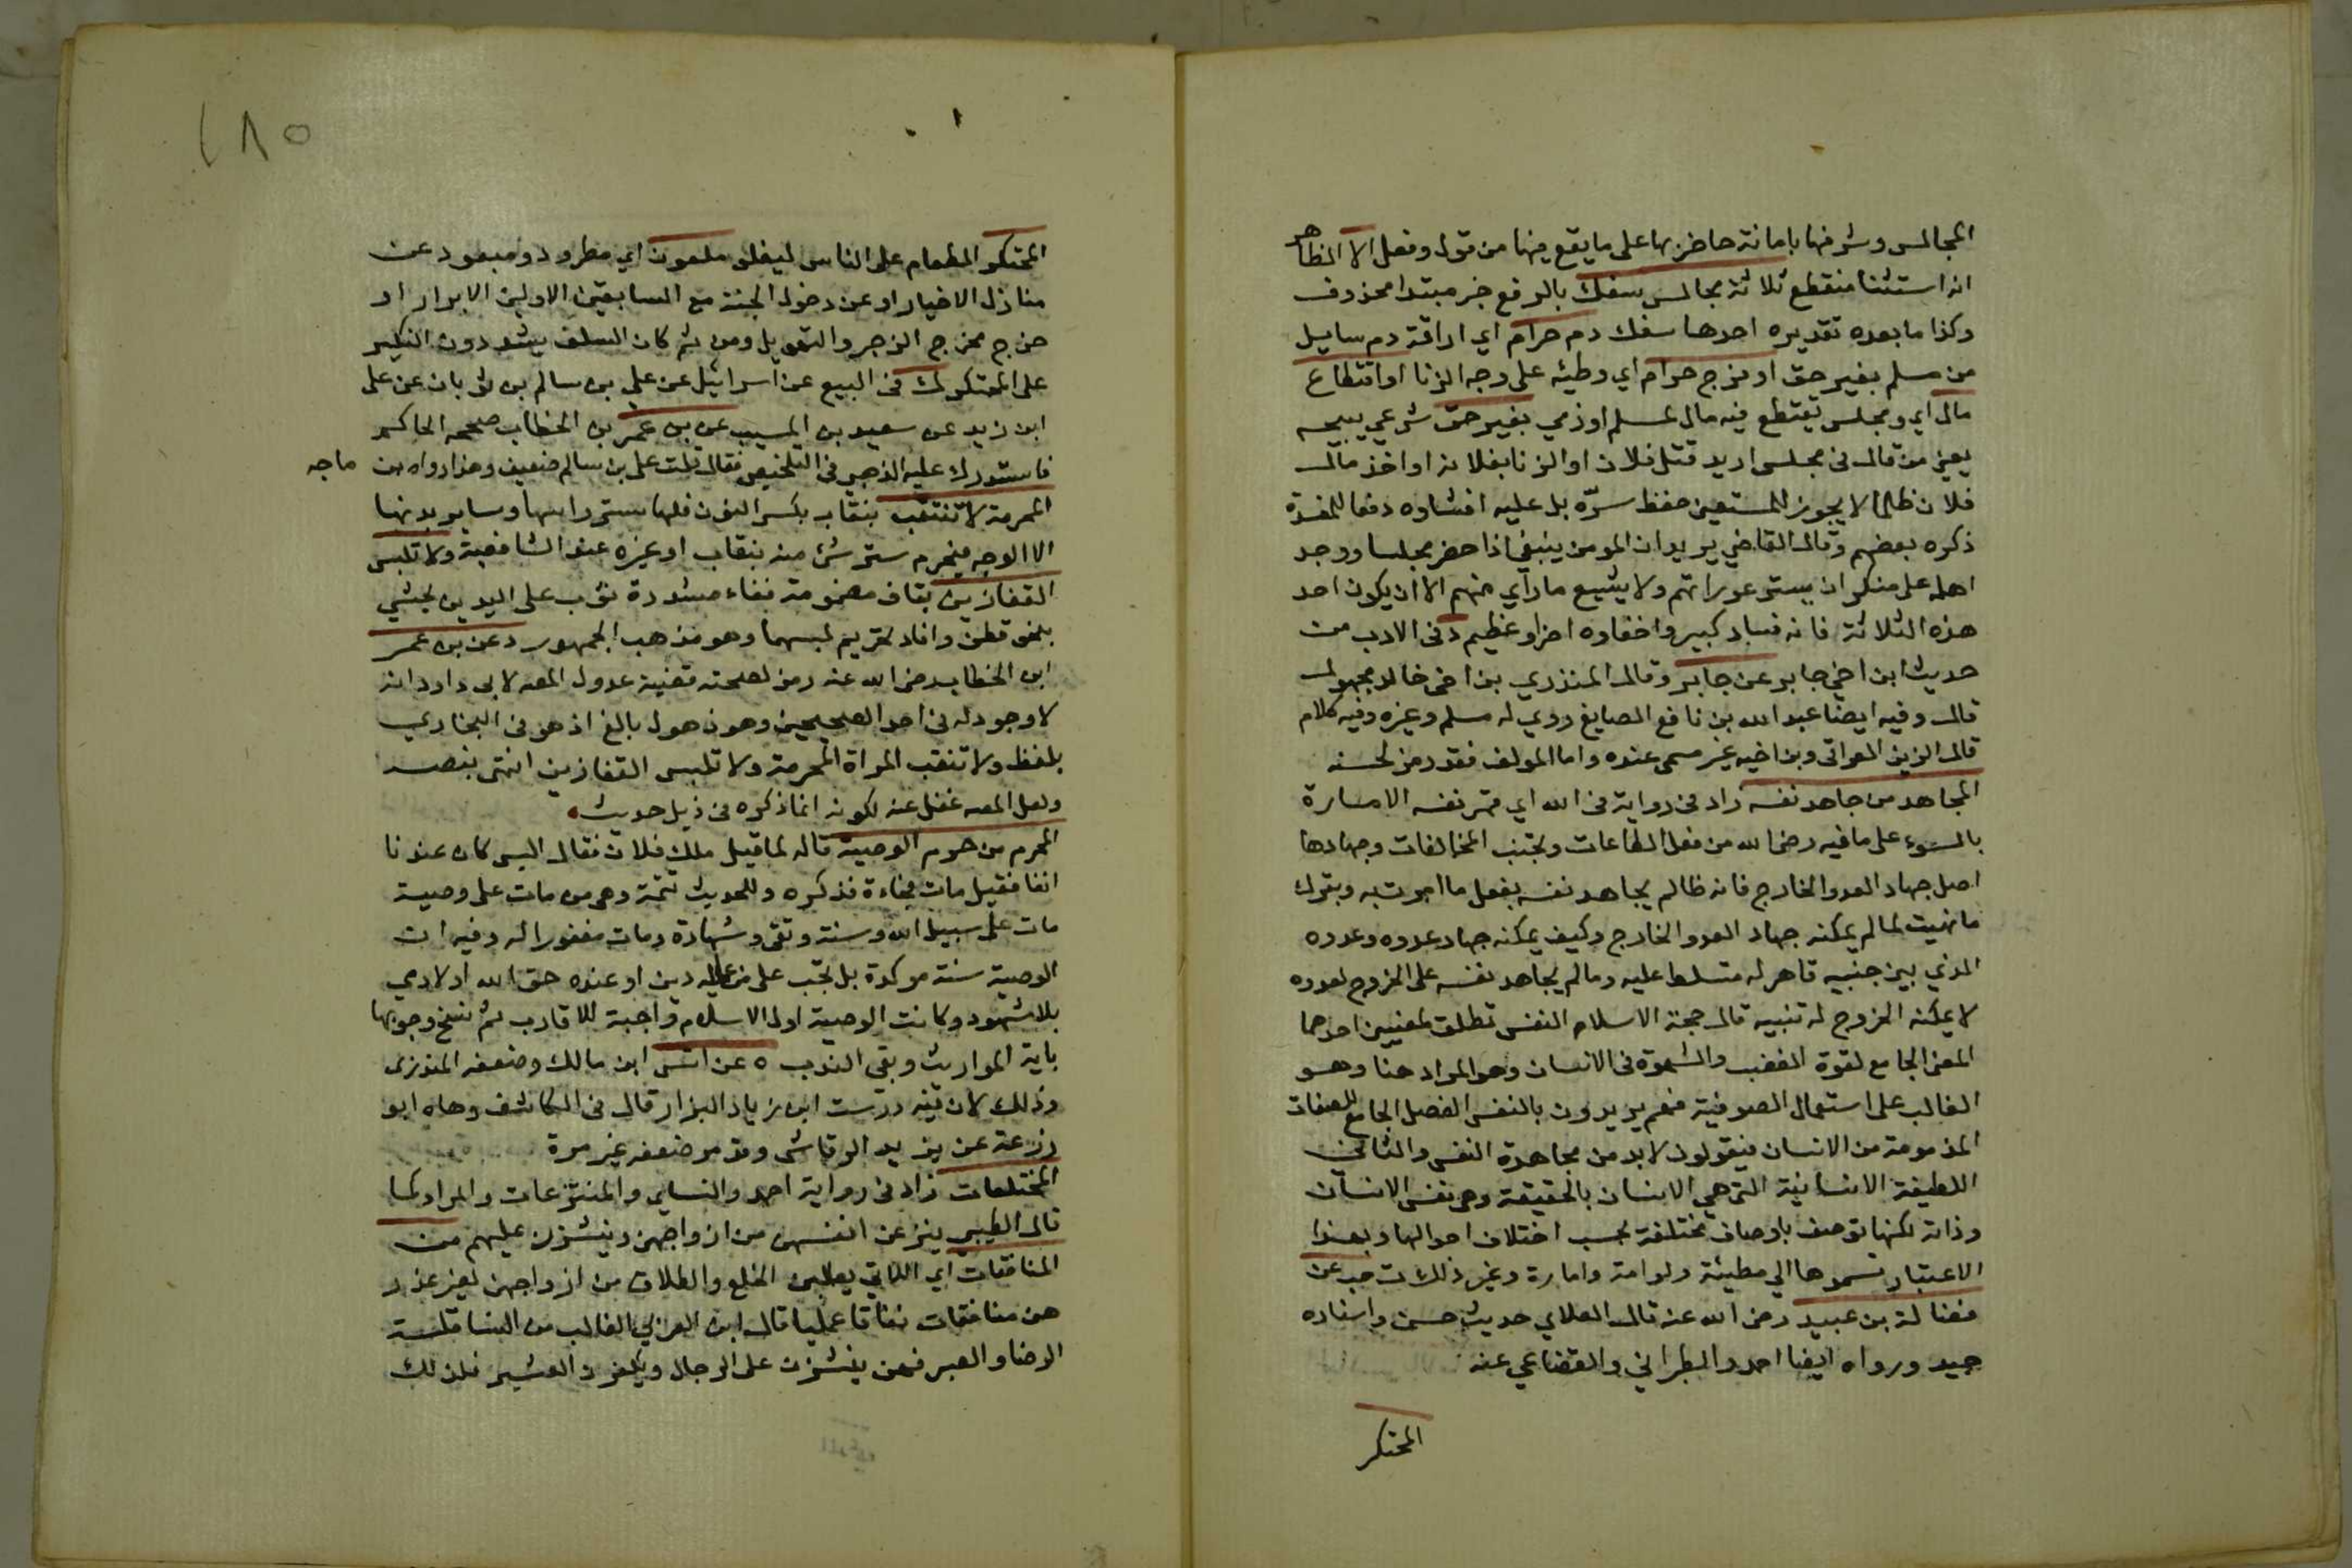 المجالس وشرفها بامانة حاضريها على ما يقع فيها من قول وفعل الا الظاهر
انه استثنا منقطع ثلاثة مجالس سفك بالرفع خبر مبتدا محذوف
وكذا ما بعده تقديره احدها سفك دم حرام اي اراقة دم سايل
من مسلم بغير حق او فرج حرام اي وطئه على وجه الزنا او اقتطاع
مال اي ومجلس يقتطع فيه مال لمسلم او ذمي بغير حق شرعي يبيحه
يعني من قال في مجلس اريد قتل فلان او الزنا بفلانه او اخذ مال
فلان ظلما لا يجوز للمستمعين حفظ سره بل عليه افشاوه دفعا للمفسدة
ذكره بعضهم وقال القاضي يريد ان المومن ينبغي اذا حضر مجلسا ووجد
اهله على منكر ان يستر عوراتهم ولا يشيع ما راي منهم الا ان يكون احد
هذه الثلاثة فانه فساد كبير واخفاوه اضرار عظيم د في الادب من
حديث ابن اخي جابر عن جابر وقال المنذري بن اخي خالد مجهول
قال وفيه ايضا عبد الله بن نافع الصايغ روي له مسلم وغيره وفيه كلام
قال الزين العراقي وبن اخيه غير مسمى عنده واما المولف فقد رمز لحسنه
المجاهد من جاهد نفسه زاد في رواية في الله اي قهر نفسه الامارة
بالسوء على ما فيه رضى الله من فعل الطاعات وتجنب المخالفات وجهادها
اصل جهاد العدو الخارج فانه ظالم يجاهد نفسه بفعل ما امرت به وبترك
ما نهيت لما لم يمكنه جهاد العدو الخارج وكيف يمكنه جهاد عدوه وعدوه
الذي بين جنبيه قاهر له متسلط عليه وما لم يجاهد نفسه على الخروج لعدوه
لا يمكنه الخروج له تنبيه قال حجة الاسلام النفس تطلق لمعنيين احدهما
المعنى الجامع لقوة الغضب والشهوة في الانسان وهو المراد هنا وهو
الغالب على استعمال الصوفية فهم يريدون بالنفس الفصل الجامع للصفات
المذمومة من الانسان فيقولون لا بد من مجاهدة النفس والثاني
اللطيفة الانسانية التي هي الانسان بالحقيقة وهي نفس الانسان
وذاته لكنها توصف باوصاف مختلفة بحسب اختلاف احوالها وبهذا
الاعتبار تسموها الي مطيئنة ولوامة وامارة وغير ذلك ت حب عن
فضالة بن عبيد رضى الله عنه قال العلاي حديث حسن واسناده
جيد ورواه ايضا احمد والطبراني والقضاعي عنه
المحتكر
١٨٥
المحتكر الطعام على الناس ليغلى ملعون اي مطرود ومبعود عن
منازل الاخيار او عن دخول الجنة مع السابقين الاولين الابرار او
خرج مخرج الزجر والتهويل ومن ثم كان السلف يشددون النكير
على المحتكر ك في البيع عن اسرائيل عن علي بن سالم بن ثوبان عن على
ابن زيد عن سعيد بن المسيب عن بن عمر بن الخطاب صححه الحاكم
فاستدرك عليه الذهبي في التلخيص فقال قلت على بن سالم ضعيف وهذا رواه بن ماجه
المحرمة لا تنتقب بنقاب بكسر النون فلها ستر راسها وساير بدنها
الا الوجه فيحرم ستر شئ منه بنقاب او غيره عند الشافعية ولا تلبس
القفازين بقاف مضمومة ففاء مشددة ثوب على اليدين يحشي
بنحو قطن وافاد تحريم لبسهما وهو مذهب الجمهور د عن بن عمر
ابن الخطاب رضى الله عنه رمز لصحته قضية عدول المصه لابى داود انه
لا وجود له في احد الصحيحين وهو ذهول بالغ اذ هو في البخاري
بلفظ ولا تنتقب المراة المحرمة ولا تلبس القفازين انتهى بنصه
ولعل المصه غفل عنه لكونه انما ذكره في ذيل حديث
المحرم من حرم الوصية قاله لما قيل هلك فلان فقال اليس كان عندنا
انفا فقيل مات فجاءة فذكره وللحديث تتمة وهي من مات على وصية
مات على سبيل الله وسنة وتقى وشهادة ومات مغفورا له وفيه ان
الوصية سنة موكدة بل تجب على من عليه دين او عنده حق الله او لادمي
بلا شهود وكانت الوصية اول الاسلام واجبة للاقارب ثم نسخ وجوبها
باية المواريث وبقى الندب ه عن انس ابن مالك وضعفه المنذري
وذلك لان فيه درست ابن زياد البزار قال في الكاشف وهاه ابو
زرعة عن يزيد الرقاشى وقد مر ضعفه غير مرة
المختلعات زاد في رواية احمد والنساي والمنتزعات والمراد كما
قال الطيبي ينزعن انفسهن من ازواجهن وينشزن عليهم هن
المنافقات اي اللاتي يطلبن الخلع والطلاق من ازواجهن لغير عذر
هن منافقات نفاقا عمليا قال ابن العربي الغالب من النسا قلة
الرضا والصبر فهن ينشزن على الرجال ويكفرن العشير فلذلك